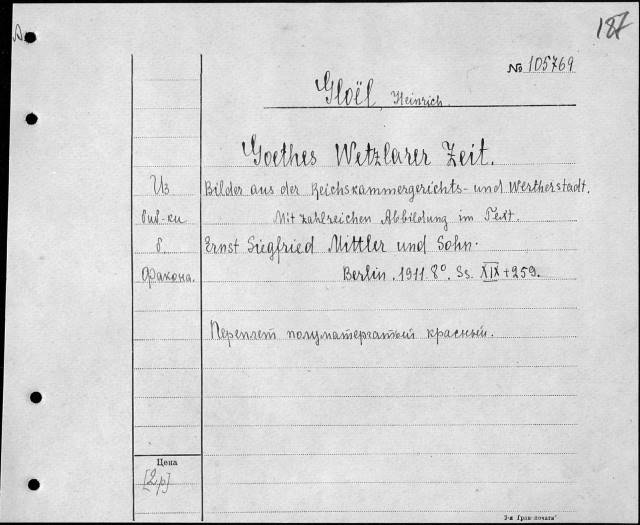 187
№ 105769
Gloël, Heinrich.
Goethes Wetzlarer Zeit.
Из Bilder aus der Reichskammergerichts- und Wertherstadt.
биб-ки Mit zahlreichen Abbildung im Text.
б. Ernst Siegfried Mittler und Sohn.
Факона. Berlin. 1911. 8°. Ss. XIX + 259.
Переплет полуматерчатый красный.
Цена
[2р]